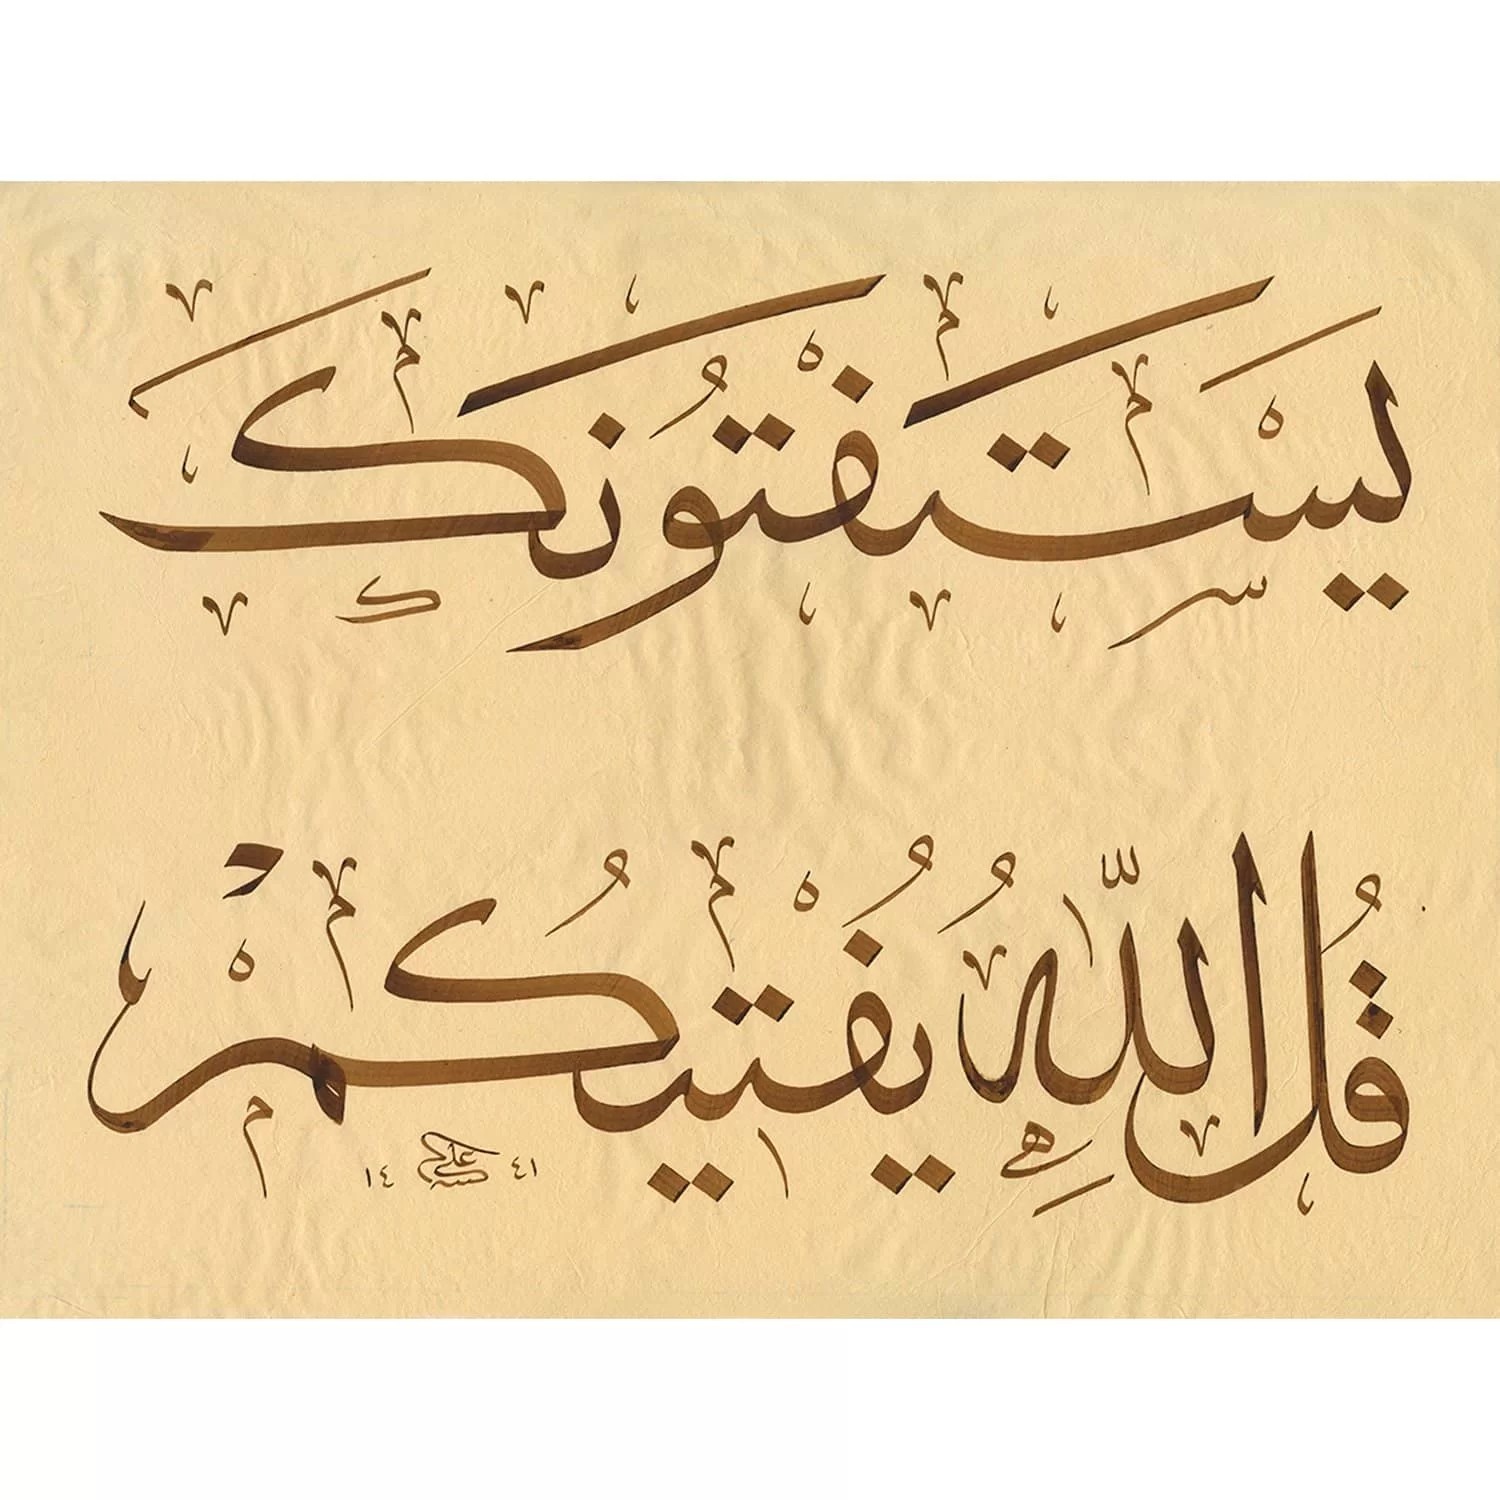 يَسْتَفْتُونَكَ
قُلِ اللّٰهُ يُفْتِيكُمْ
١٤ علي ٤١